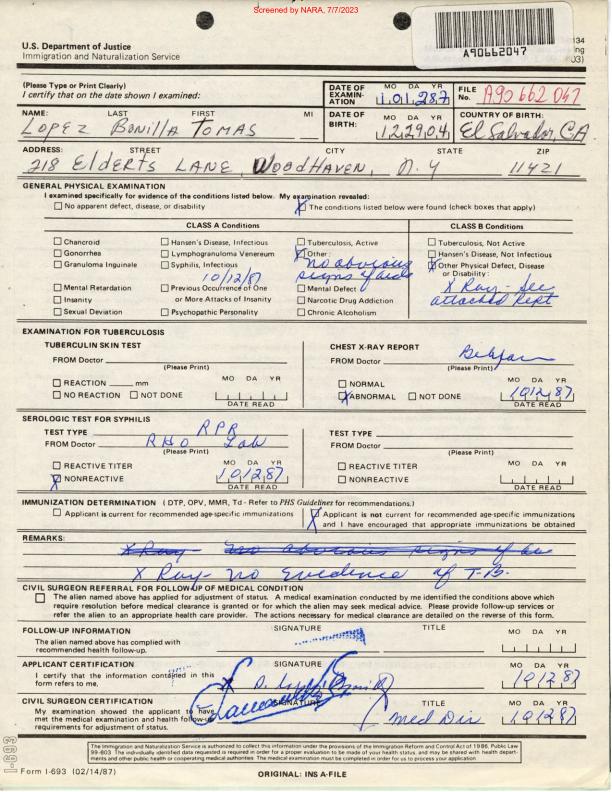 Screened by NARA, 7/7/2023
U.S. Department of Justice
Immigration and Naturalization Service
A90662047
134
ng
03)
(Please Type or Print Clearly)
I certify that on the date shown I examined:
DATE OF EXAMIN-ATION MO DA YR 101287
FILE No. A90 662 047
NAME: LAST FIRST MI
Lopez Bonilla Tomas
DATE OF BIRTH: MO DA YR 122904
COUNTRY OF BIRTH: El Salvador, CA
ADDRESS: STREET CITY STATE ZIP
218 Elderts LANE, WoodHaven, N.Y 11421
GENERAL PHYSICAL EXAMINATION
I examined specifically for evidence of the conditions listed below. My examination revealed:
No apparent defect, disease, or disability
X The conditions listed below were found (check boxes that apply)
CLASS A Conditions
CLASS B Conditions
Chancroid
Gonorrhea
Granuloma Inguinale
Mental Retardation
Insanity
Sexual Deviation
Hansen's Disease, Infectious
Lymphogranuloma Venereum
Syphilis, Infectious
10/12/87
Previous Occurrence of One
or More Attacks of Insanity
Psychopathic Personality
Tuberculosis, Active
X Other:
No obvious
signs of aids
Mental Defect
Narcotic Drug Addiction
Chronic Alcoholism
Tuberculosis, Not Active
Hansen's Disease, Not Infectious
X Other Physical Defect, Disease
or Disability:
X Ray - See
attached Rept
EXAMINATION FOR TUBERCULOSIS
TUBERCULIN SKIN TEST
FROM Doctor
(Please Print)
REACTION mm
NO REACTION NOT DONE
MO DA YR
DATE READ
CHEST X-RAY REPORT
FROM Doctor
(Please Print)
NORMAL
X ABNORMAL NOT DONE
MO DA YR
101287
DATE READ
SEROLOGIC TEST FOR SYPHILIS
TEST TYPE RPR
FROM Doctor Lab
(Please Print)
REACTIVE TITER
X NONREACTIVE
MO DA YR
101287
DATE READ
TEST TYPE
FROM Doctor
(Please Print)
REACTIVE TITER
NONREACTIVE
MO DA YR
DATE READ
IMMUNIZATION DETERMINATION (DTP, OPV, MMR, Td - Refer to PHS Guidelines for recommendations.)
Applicant is current for recommended age-specific immunizations
X Applicant is not current for recommended age-specific immunizations
and I have encouraged that appropriate immunizations be obtained
REMARKS:
X Ray - No obvious signs of
X Ray - no evidence of T.B.
CIVIL SURGEON REFERRAL FOR FOLLOW-UP OF MEDICAL CONDITION
The alien named above has applied for adjustment of status. A medical examination conducted by me identified the conditions above which
require resolution before medical clearance is granted or for which the alien may seek medical advice. Please provide follow-up services or
refer the alien to an appropriate health care provider. The actions necessary for medical clearance are detailed on the reverse of this form.
FOLLOW-UP INFORMATION SIGNATURE TITLE MO DA YR
The alien named above has complied with
recommended health follow-up.
APPLICANT CERTIFICATION SIGNATURE MO DA YR
I certify that the information contained in this
form refers to me.
X
101287
CIVIL SURGEON CERTIFICATION SIGNATURE TITLE MO DA YR
My examination showed the applicant to have
met the medical examination and health follow-up
requirements for adjustment of status.
Med Dir 101287
The Immigration and Naturalization Service is authorized to collect this information under the provisions of the Immigration Reform and Control Act of 1986, Public Law
99-603. The individually identified data requested is required in order for a proper evaluation to be made of your health status, and may be shared with health depart-
ments and other public health or cooperating medical authorities. The medical examination must be completed in order for us to process your application.
Form I-693 (02/14/87)
ORIGINAL: INS A-FILE